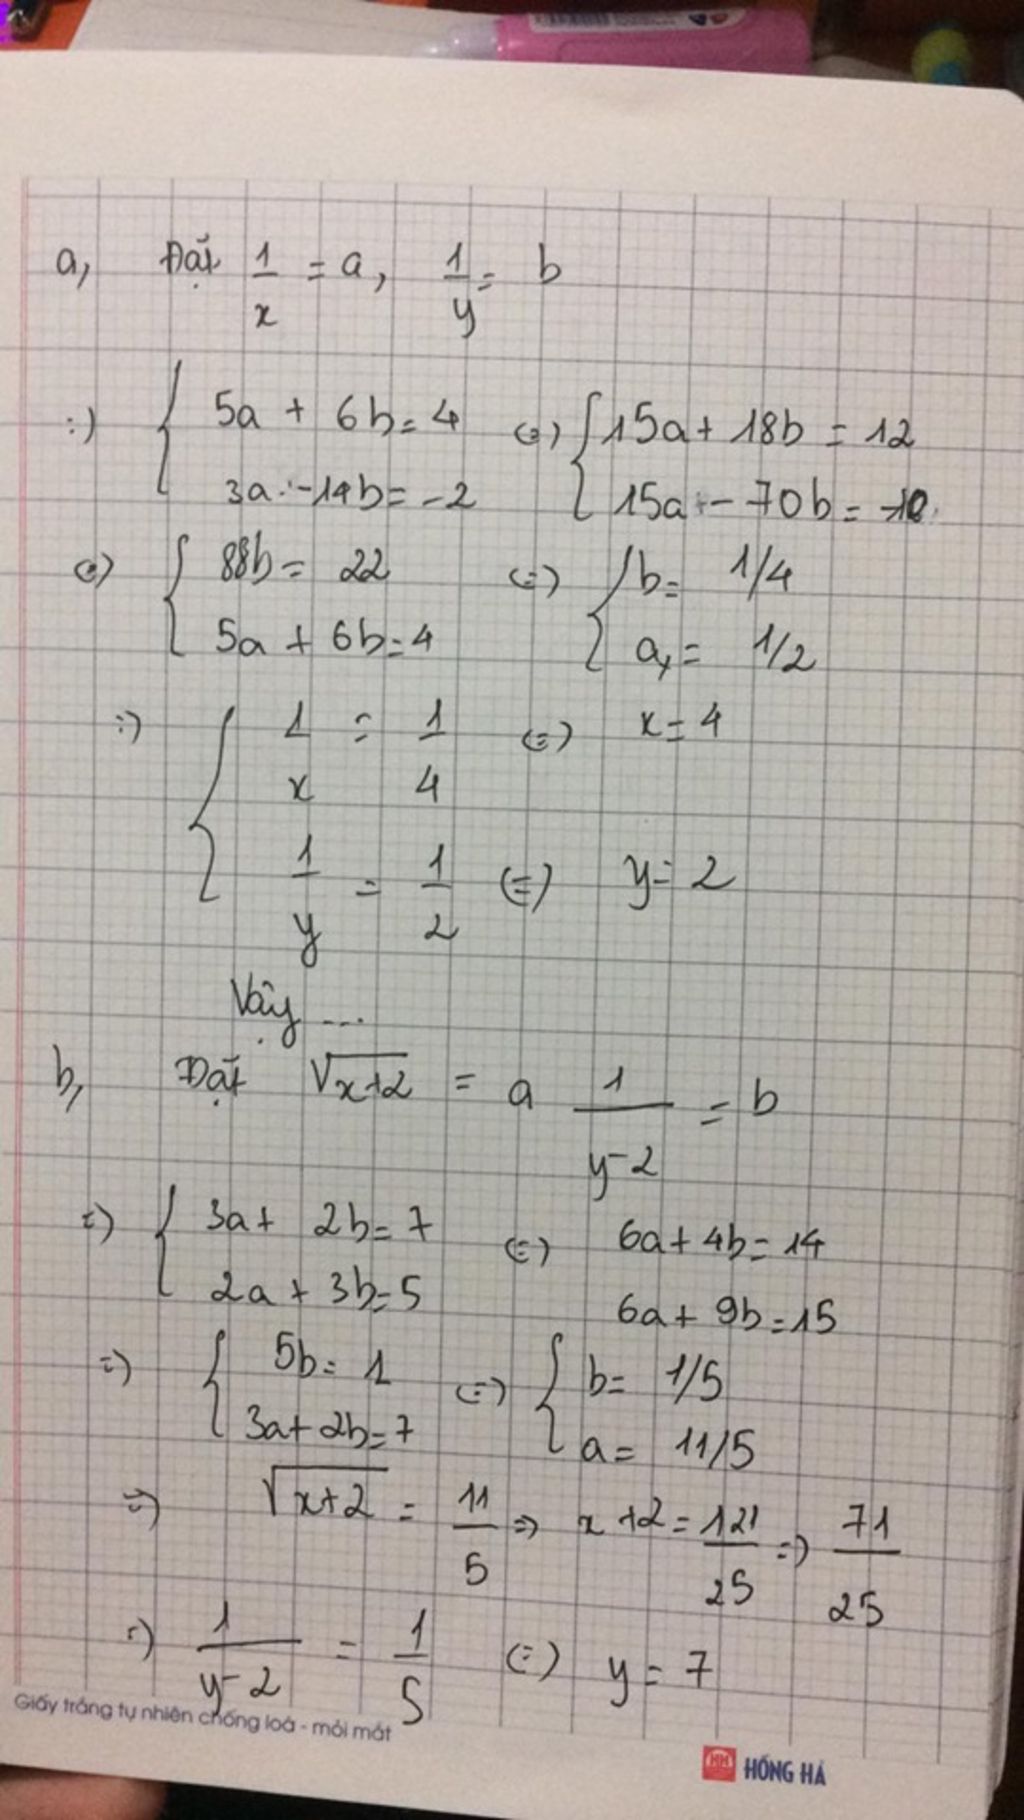 a, Đặt 1/x = a, 1/y = b
=) { 5a + 6b = 4 (=) { 15a + 18b = 12
3a - 14b = -2 15a - 70b = -10
(=) { 88b = 22 (=) { b = 1/4
5a + 6b = 4 a = 1/2
=) { 1/x = 1/4 (=) x = 4
1/y = 1/2 (=) y = 2
Vậy ...
b, Đặt √x+2 = a 1/y-2 = b
=) { 3a + 2b = 7 (=) 6a + 4b = 14
2a + 3b = 5 6a + 9b = 15
=) { 5b = 1 (=) { b = 1/5
3a + 2b = 7 a = 11/5
=) √x+2 = 11/5 => x + 2 = 121/25 =) 71/25
=) 1/y-2 = 1/5 (=) y = 7
Giấy trắng tự nhiên chống loá - mỏi mắt
HH HỒNG HÀ